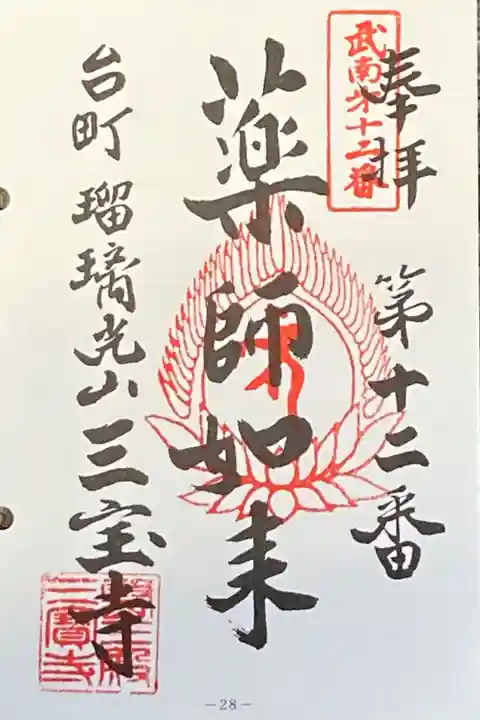 奉拝 第十二番
武南才十二番
薬師如来
台町 瑠璃光山三宝寺
三寶寺
－28－